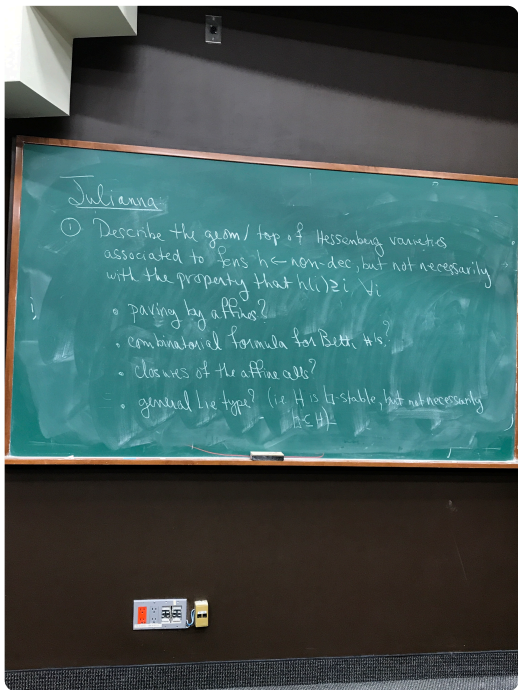 Julianna
① Describe the geom/top of Hessenberg varieties
associated to fcns h ← non-dec, but not necessarily
with the property that h(i) ≥ i, ∀i
• paving by affines?
• combinatorial formula for Betti #'s?
• closures of the affine cells?
• general Lie type? (ie H is b-stable, but not necessarily
b ⊆ H)